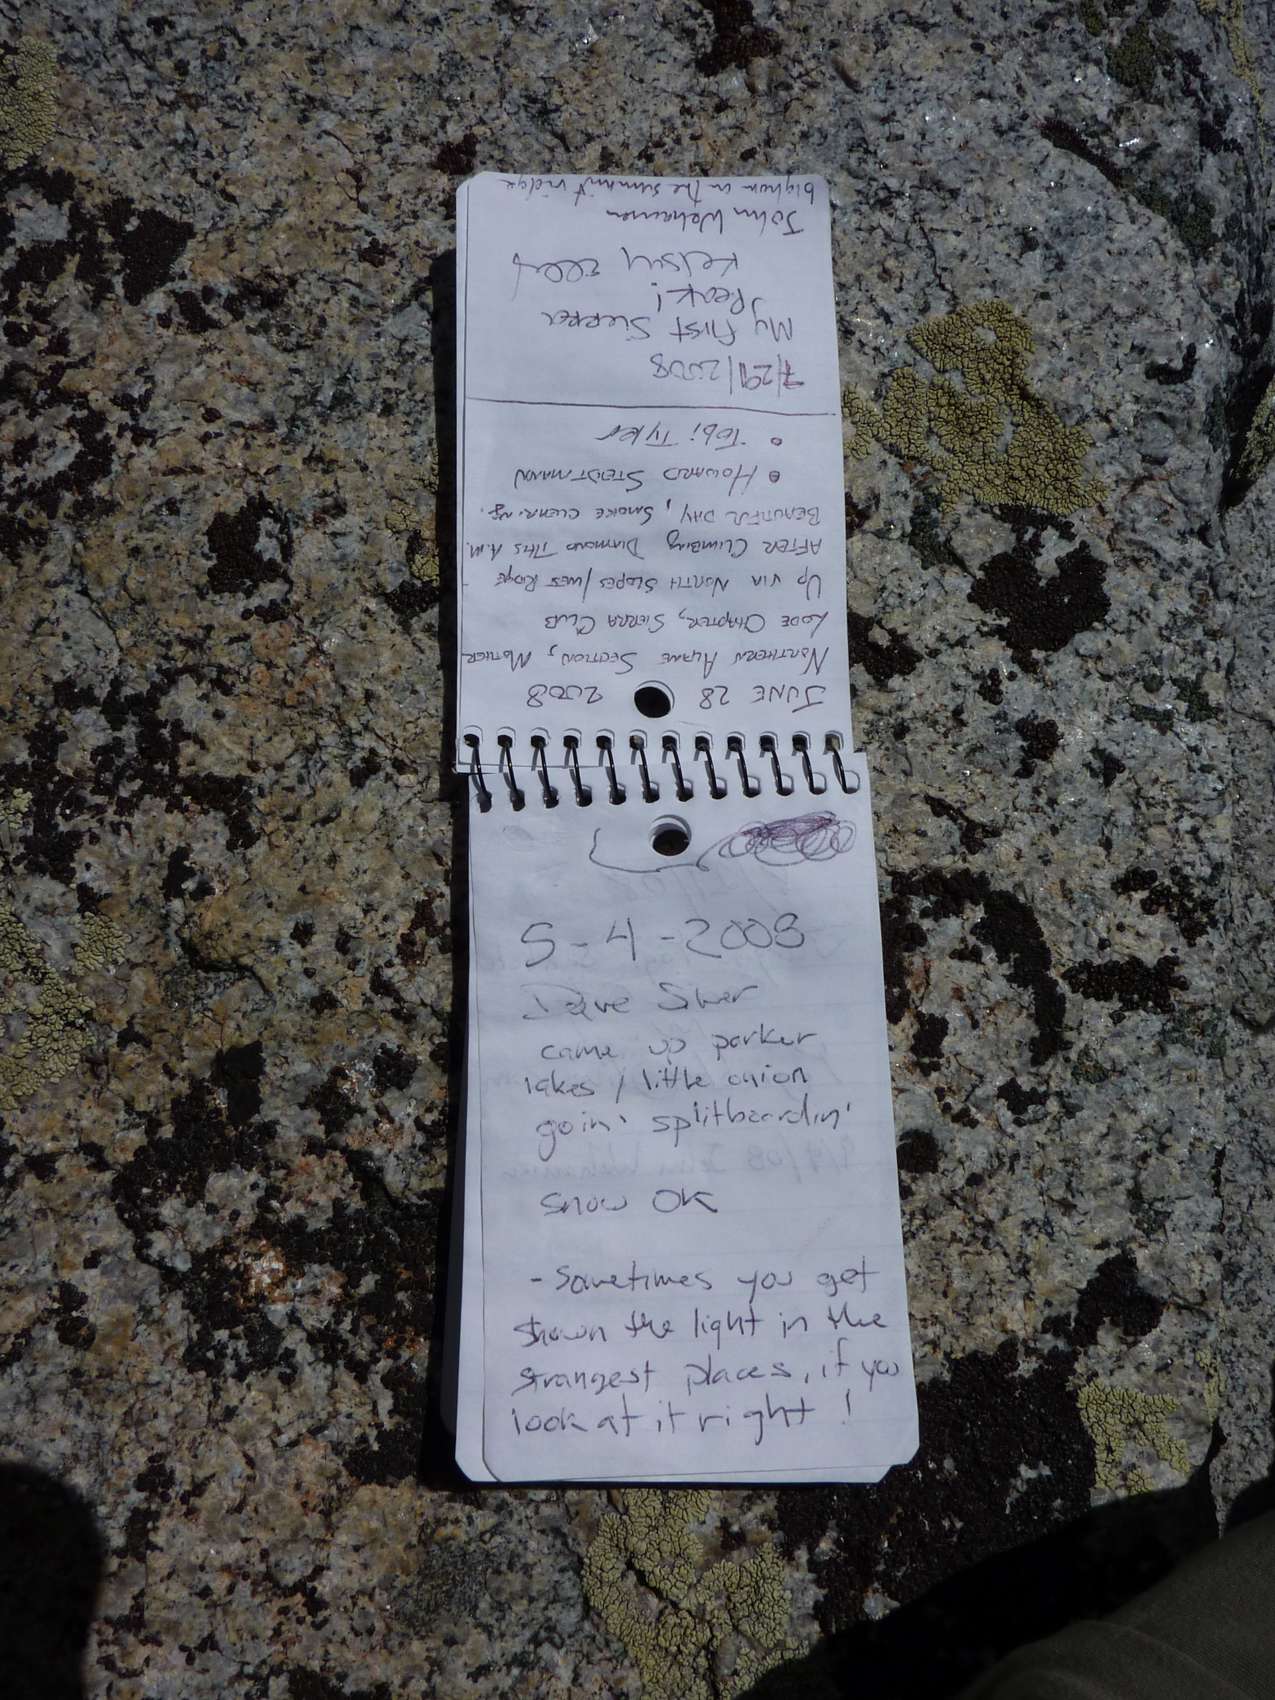 5-4-2008
Dave
came up parker
lakes / little onion
goin' splitboardin'
snow OK
- Sometimes you get
shown the light in the
strangest places, if you
look at it right !
JUNE 28 2008
NORTHERN ALPINE SECTION, MOTHER
LODE CHAPTER, SIERRA CLUB
UP VIA NORTH SLOPES/WEST RIDGE
AFTER CLIMBING DIAMOND THIS A.M.
BEAUTIFUL DAY, SMOKE CLEARING.
• HOWARD STEIDTMANN
• TOBI TYLER
7/29/2008
My FIRST SIERRA
Peak!
Kelsey
John Wehausen
bighorn on the summit ridge